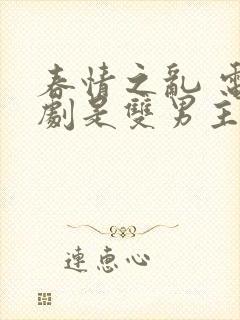 春情之亂 電
劇是雙男主
連惠心